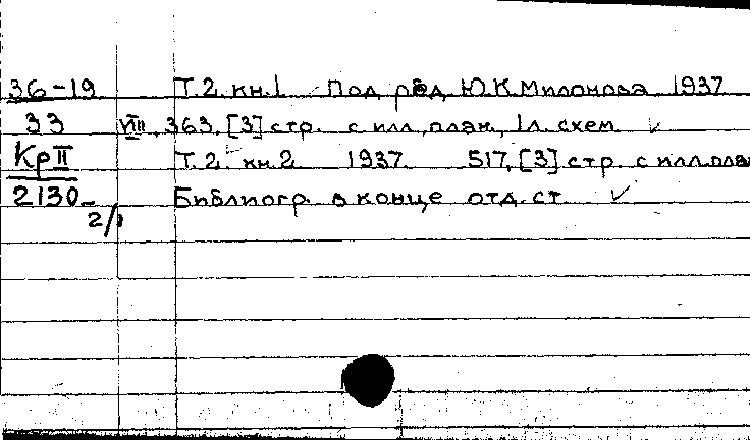 36-19 Т.2 кн.1 Под ред Ю.К.Милонова 1937
33 VIII, 363, [3] стр. с илл, план, 1л. схем
Кр II Т.2 кн.2 1937. 517, [3] стр. с илл.план
2130- Библиогр в конце отд.ст
2/1